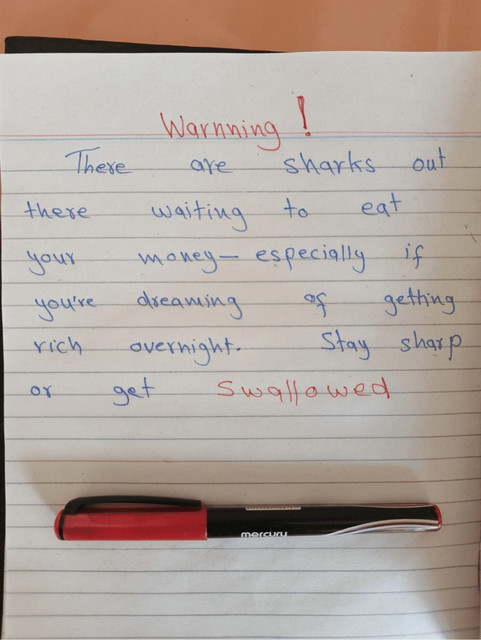 Warnning!
There are sharks out
there waiting to eat
your money— especially if
you're dreaming of getting
rich overnight. Stay sharp
or get swallowed
mercury